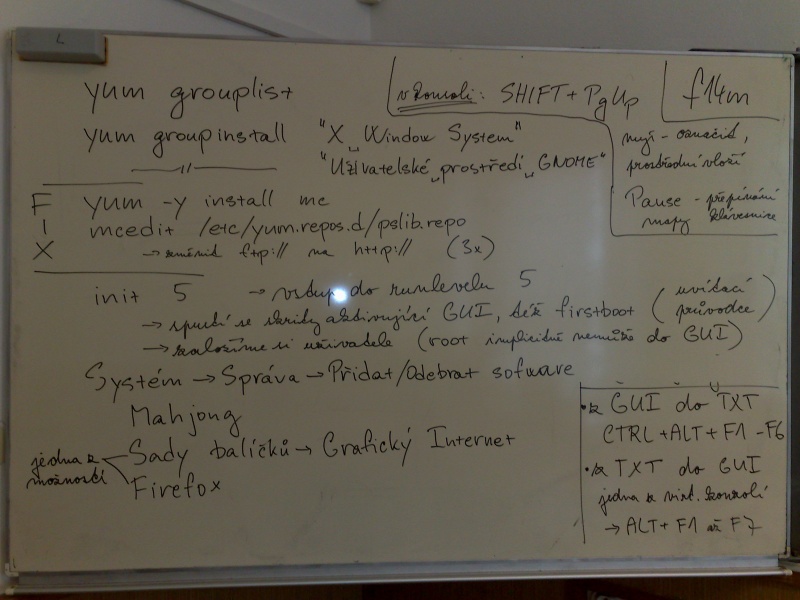 yum grouplist
v konzoli: SHIFT + PgUp
f14m
yum groupinstall "X␣Window System"
"Uživatelské␣prostředí␣GNOME"
myš - označit,
prostřední vloží
Pause - přepínání
mapy klávesnice
FIX
yum -y install mc
mcedit /etc/yum.repos.d/pslib.repo
→ změnit ftp:// na http:// (3x)
init 5 → vstup do runlevelu 5
→ spustí se skripty aktivující GUI, též firstboot (uvítací průvodce)
→ založíme si uživatele (root implicitně nemůže do GUI)
Systém → Správa → Přidat/Odebrat sofware
Mahjong
jedna z možností
Sady balíčků → Grafický Internet
Firefox
• z GUI do TXT
CTRL + ALT + F1 - F6
• z TXT do GUI
jedna z virt. konzolí
→ ALT + F1 až F7